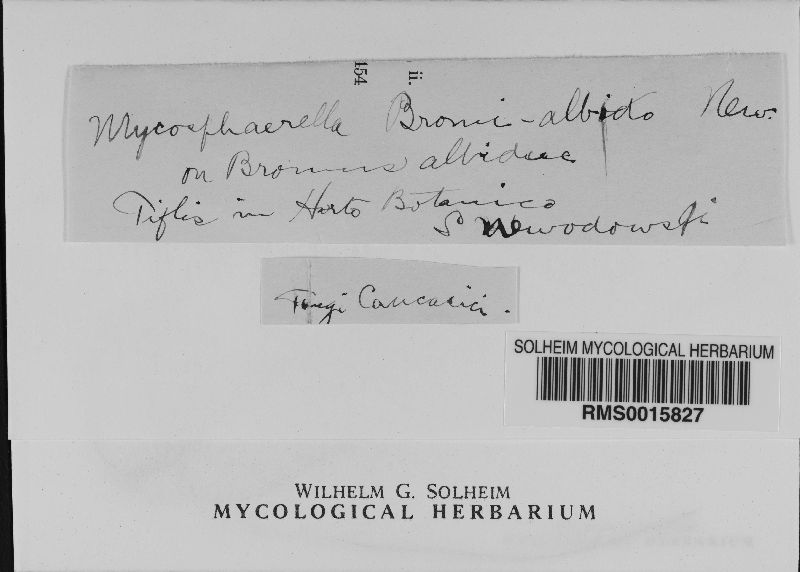 154 ii.
Mycosphaerella Bromi-albido New.
on Bromus albidus
Tiflis in Horto Botanico
S Newodowski
Fungi Caucasici.
SOLHEIM MYCOLOGICAL HERBARIUM
RMS0015827
WILHELM G. SOLHEIM
MYCOLOGICAL HERBARIUM